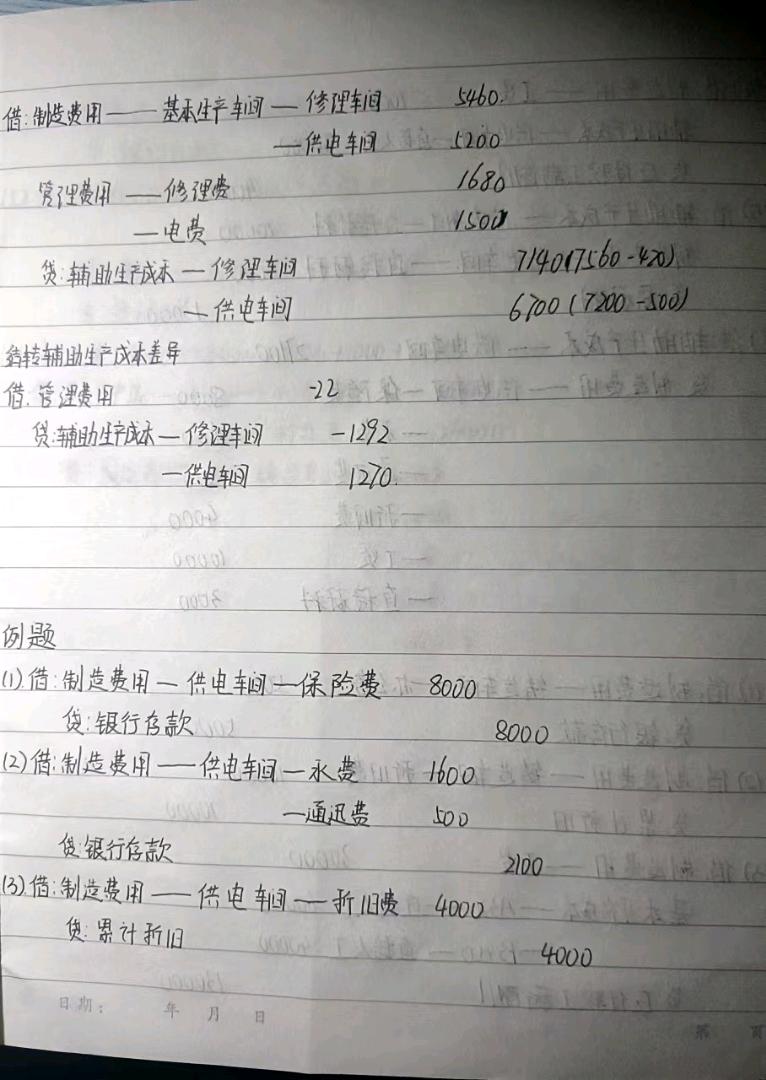 借:制造费用——基本生产车间—修理车间 5460.
—供电车间 5200
管理费用——修理费 1680
—电费 1500
贷:辅助生产成本—修理车间 7140(7560-420)
—供电车间 6700(7200-500)
结转辅助生产成本差异
借:管理费用 -22
贷:辅助生产成本—修理车间 -1292
—供电车间 1270.
例题
(1).借:制造费用—供电车间—保险费 8000
贷:银行存款 8000
(2)借:制造费用——供电车间—水费 1600
—通迅费 500
贷:银行存款 2100
(3).借:制造费用——供电车间——折旧费 4000
贷:累计折旧 4000
日期: 年 月 日